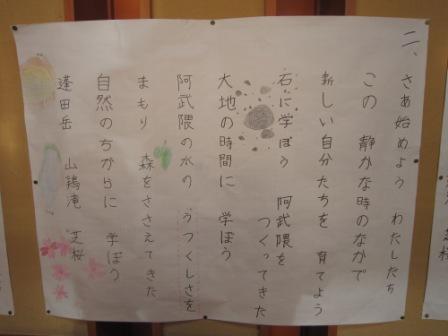 二、
さあ始めよう わたしたち
この 静かな時のなかで
新しい自分たちを 育てよう
石に学ぼう 阿武隈を
つくってきた
大地の時間に 学ぼう
阿武隈の水の うつくしさを
まもり 森をささえてきた
自然のちからに 学ぼう
蓬田岳 山鶏滝 芝桜